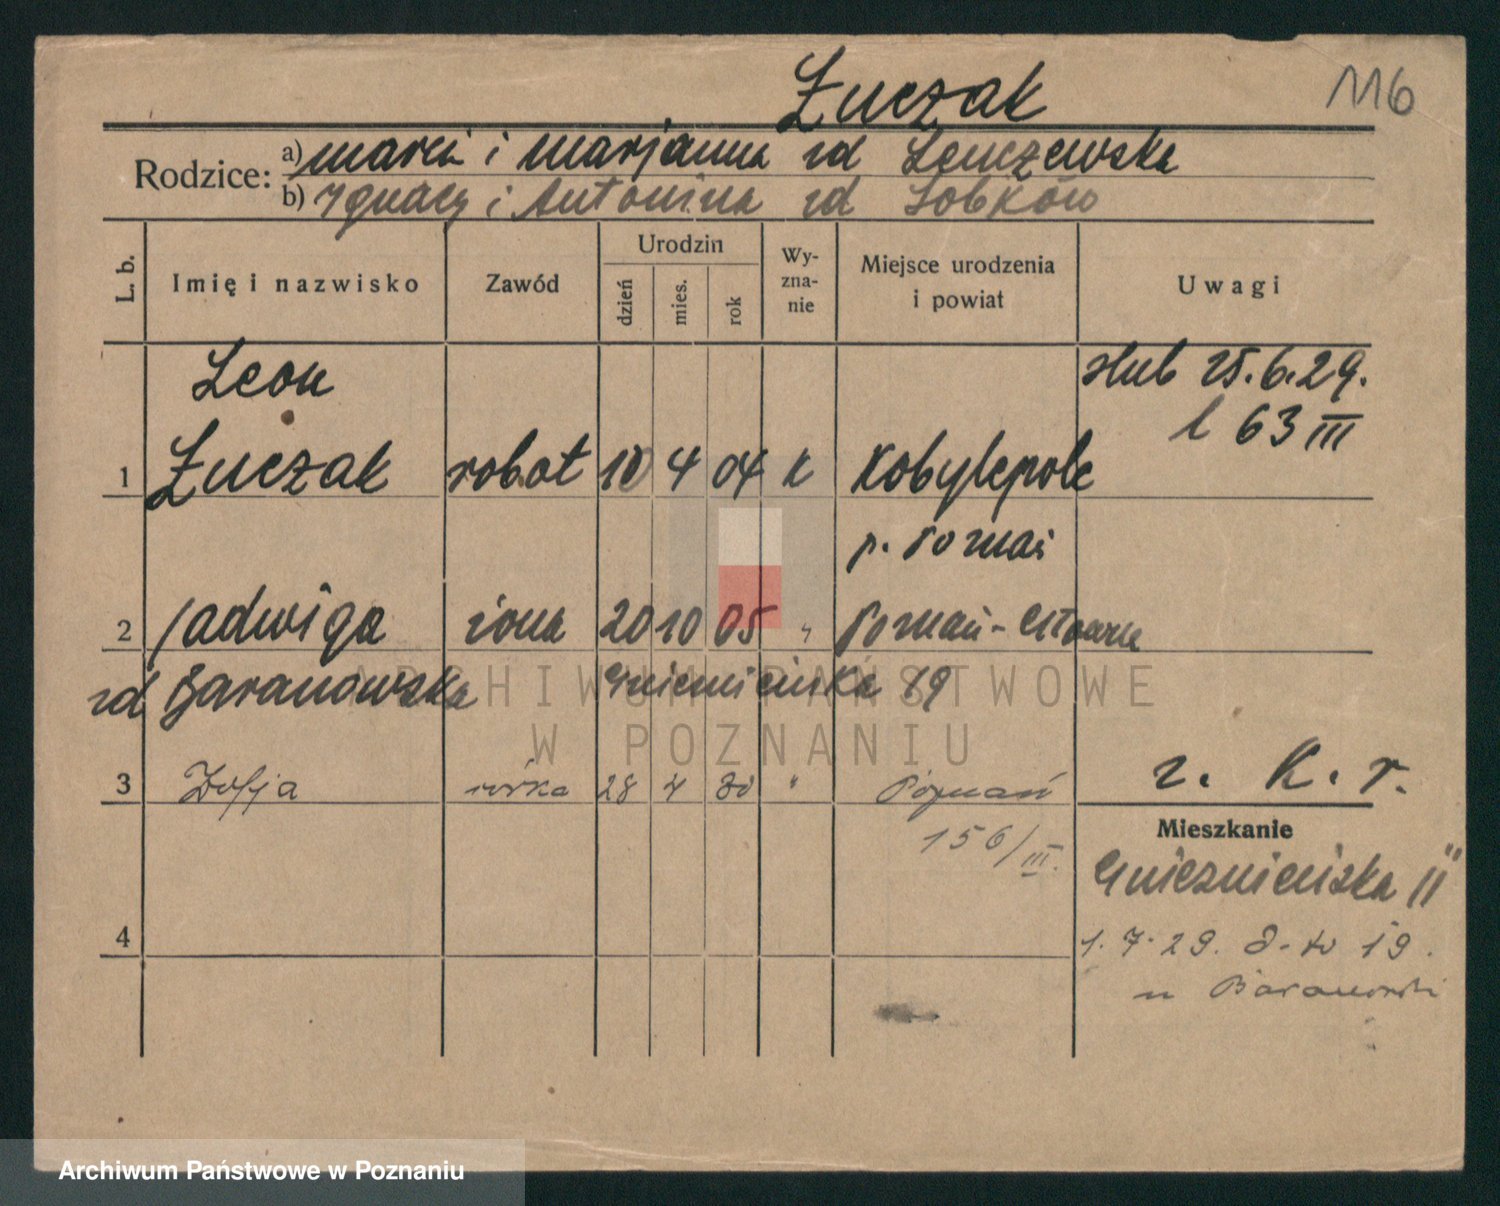 116
Łuczak
Rodzice: a) Marcin i Marjanna zd Lenczewska
b) Ignacy i Antonina zd Sobków
L. b. Imię i nazwisko Zawód Urodzin dzień mies. rok Wy-zna-nie Miejsce urodzenia i powiat Uwagi
Leon ślub 25.6.29.
l 63 III
1 Łuczak robot 10 4 04 k Kobylepole
p. Poznań
2 Jadwiga żona 20 10 05 " Poznań-Główna
zd Baranowska Gnieźnieńska 19
3 Zofja córka 28 4 30 " Poznań
z. K. r.
156/III.
Mieszkanie
Gnieźnieńska 11
4
1.7.29. d-to 19.
u Baranowski
ARCHIWUM PAŃSTWOWE
W POZNANIU
Archiwum Państwowe w Poznaniu